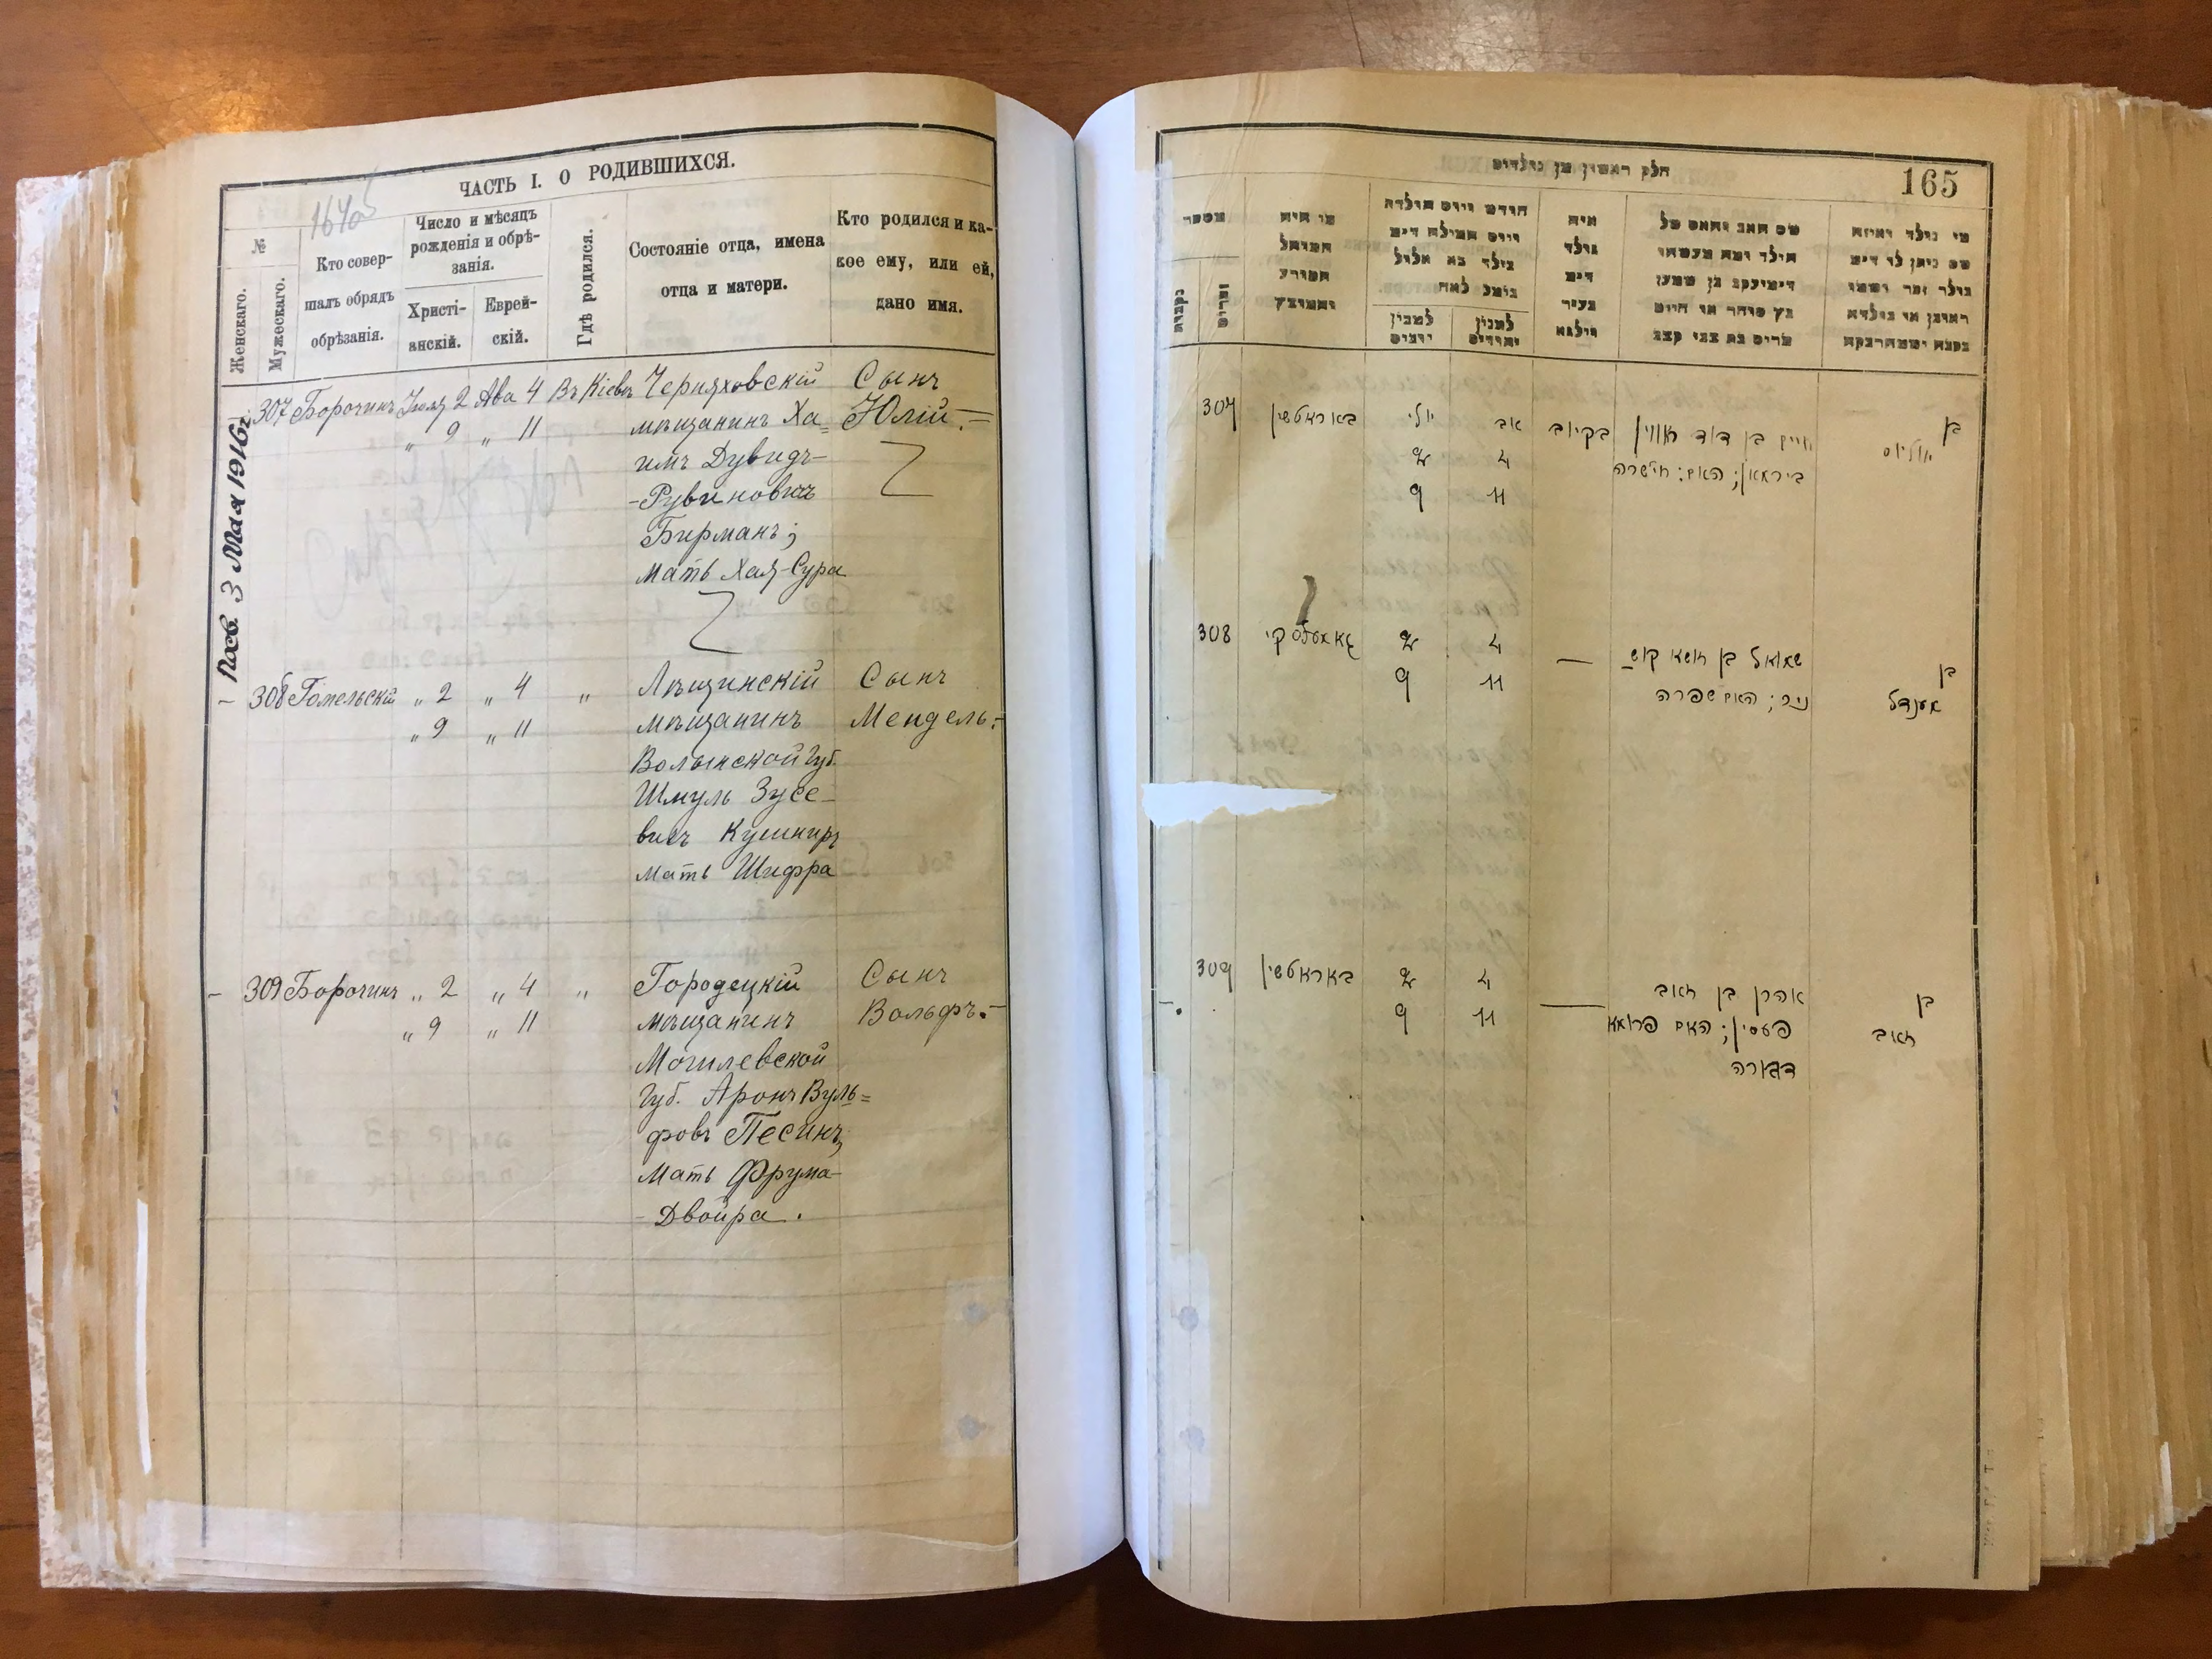 ЧАСТЬ I. О РОДИВШИХСЯ.
№
Женскаго.
Мужескаго.
Кто совер-
шалъ обрядъ
обрѣзанія.
Число и мѣсяцъ
рожденія и обрѣ-
занія.
Христі-
анскій.
Еврей-
скій.
Гдѣ родился.
Состояніе отца, имена
отца и матери.
Кто родился и ка-
кое ему, или ей,
дано имя.
3 Мая 1916 г.
307 Борочинъ Іюля 2 Ава 4 Въ Кіевѣ Черняховскій Сынъ
„ 9 „ 11 мѣщанинъ Ха= Юлій.=
имъ Дувидъ-
-Рувиновичъ
Бирманъ;
мать Хая-Сура
- 308 Гомельскій „ 2 „ 4 „ Лѣщинскій Сынъ
„ 9 „ 11 мѣщанинъ Мендель.-
Волынской губ.
Шмуль Зусе-
вичъ Кушниръ
мать Шифра
- 309 Борочинъ „ 2 „ 4 „ Городецкій Сынъ
„ 9 „ 11 мѣщанинъ Вольфъ.-
Могилевской
губ. Аронъ Вуль=
фовъ Песинъ,
мать Фрума-
-Двойра.
165
חלק ראשון מן נולדים
מספר
נקבות
זכרים
מי היה
המוהל
חודש ויום הולדת
ויום המילה
למנין
יהודים
איה
נולד
שם האב והאם של
הילד ומה מעשהו
מי נולד ואיזה
שם ניתן לו
307 באראטשין יולי אב בקיוב חיים בן דוד ראובין בן
2 4 ביראמאן; האם: חי'שרה יוליוס
9 11
308 2 4 — שמואל בן זוסא קוש בן
9 11 ניר; האם שפרה מענדל
309 באראטשין 2 4 — אהרן בן זאב בן
9 11 פעסין; האם פרומא זאב
דבורה